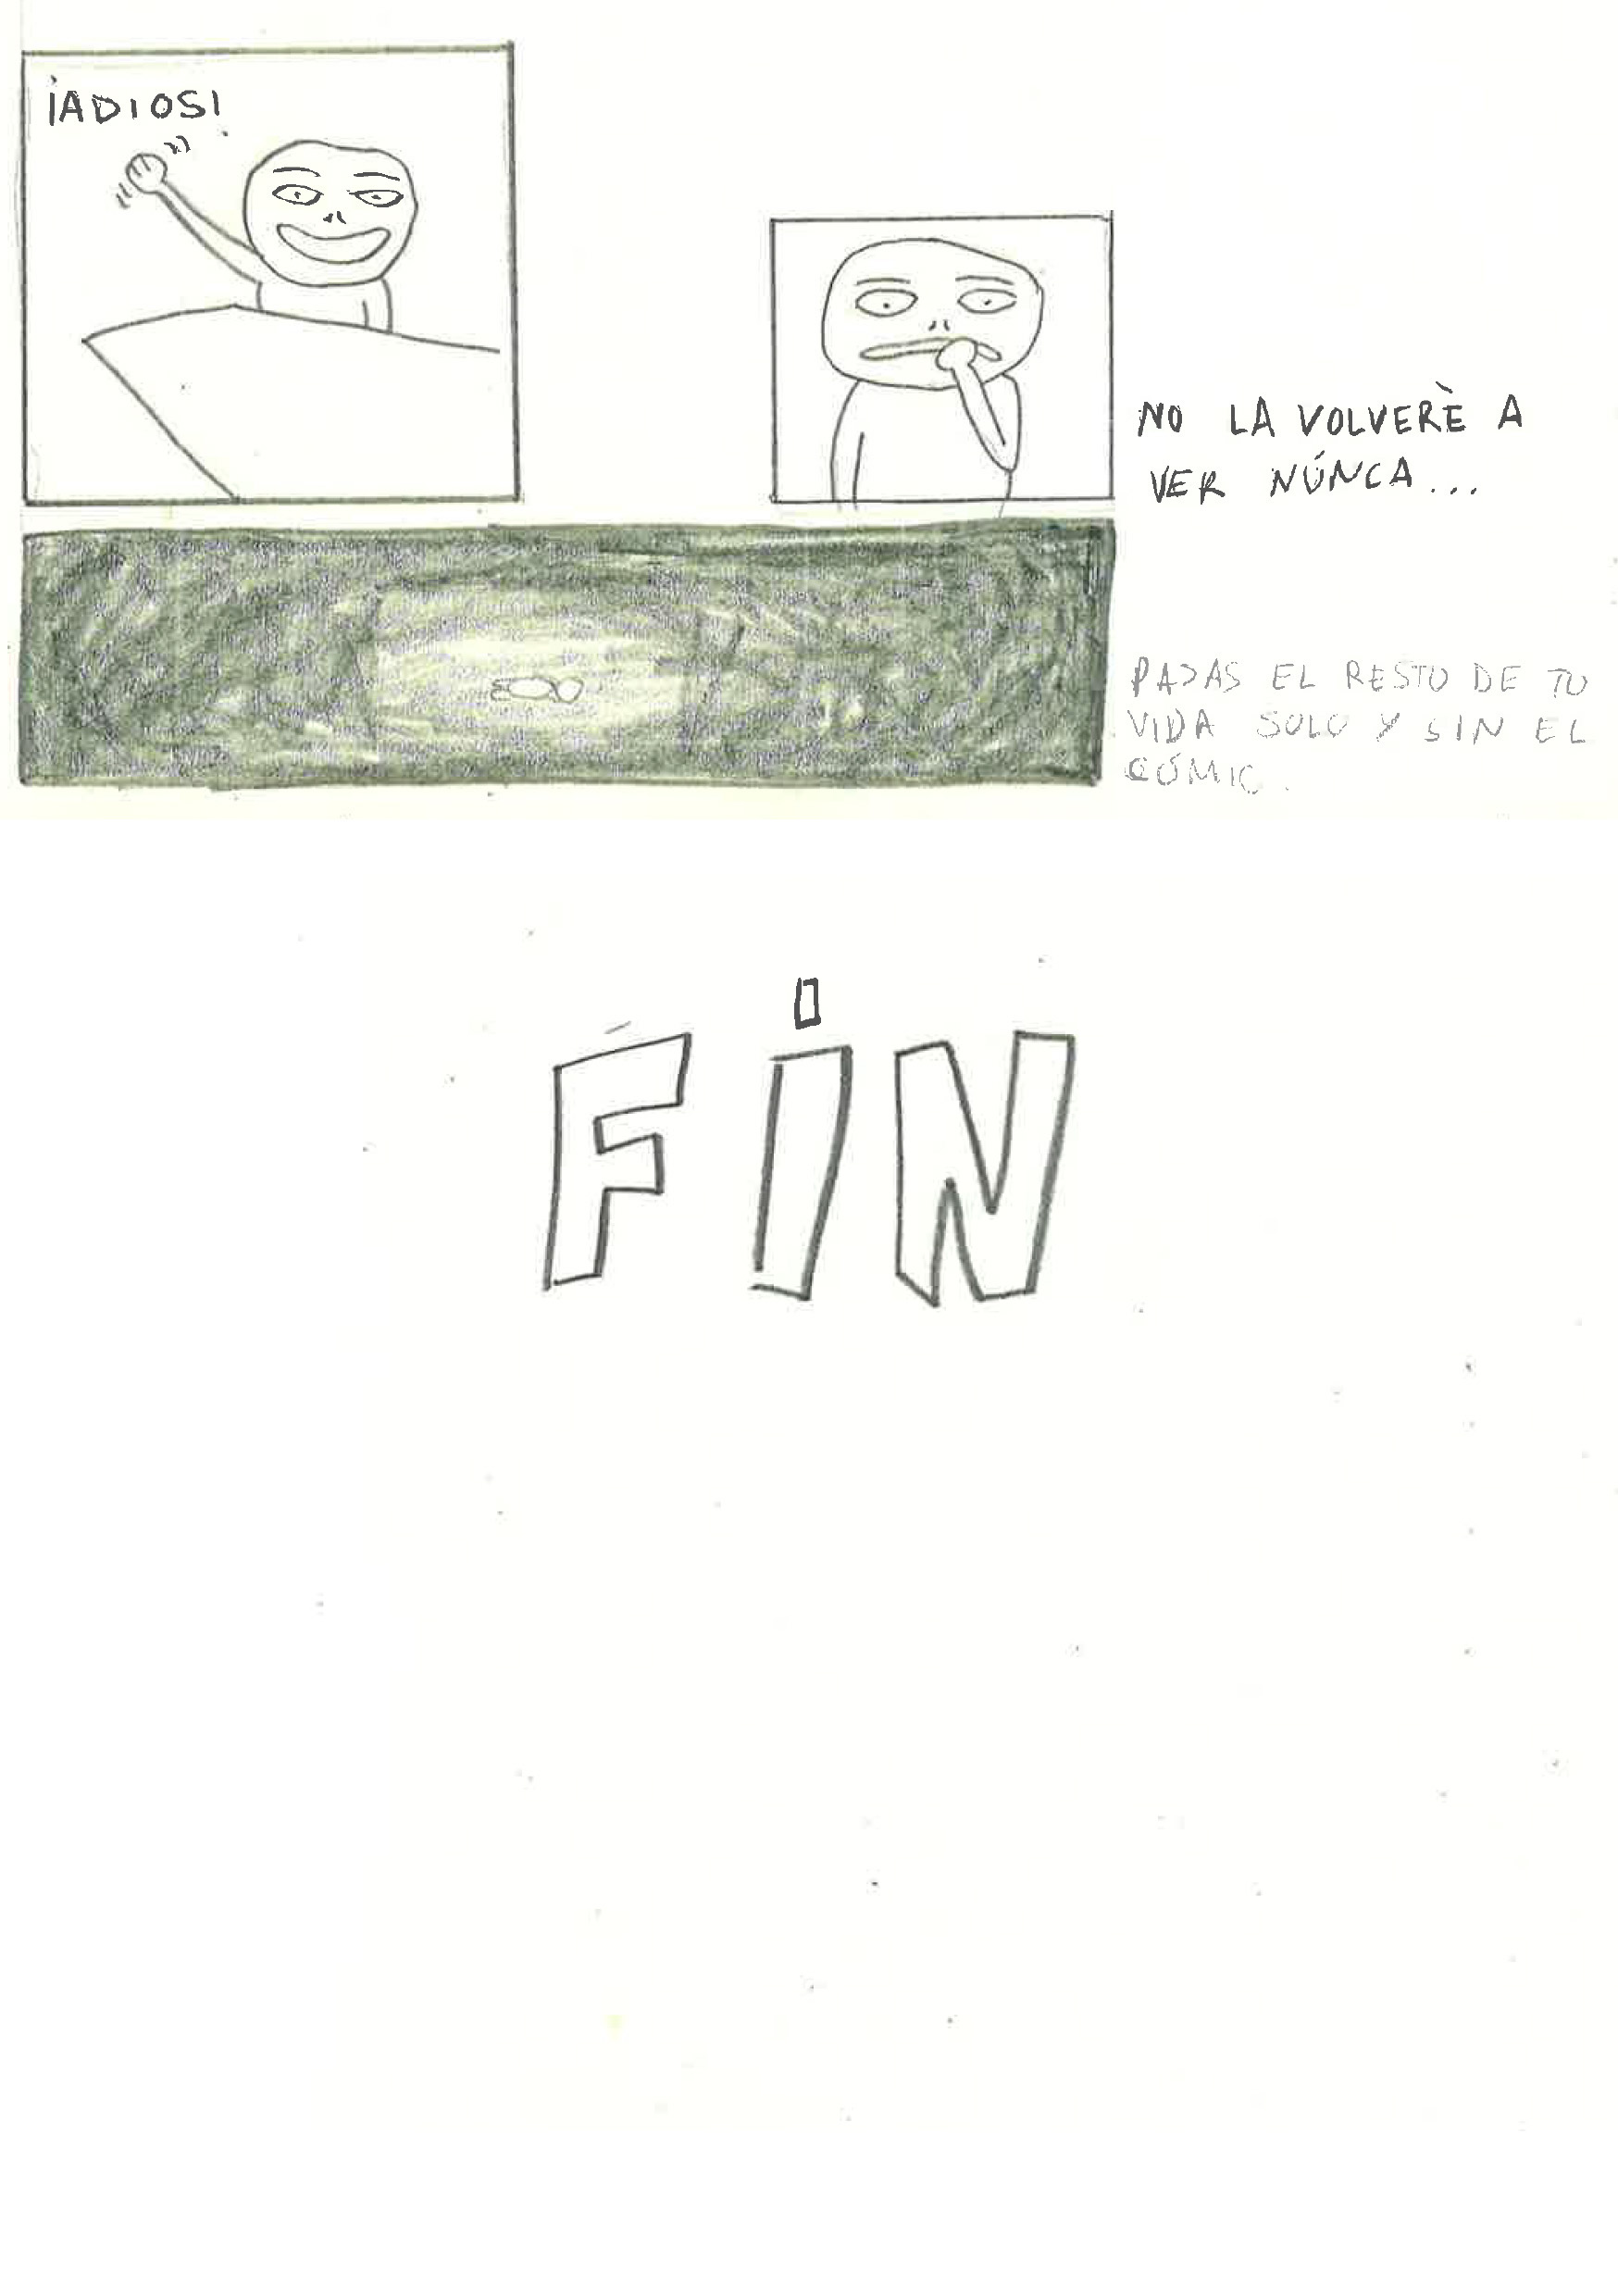 ¡ADIOS!
NO LA VOLVERÈ A
VER NÚNCA...
PASAS EL RESTO DE TU
VIDA SOLO Y SIN EL
CÓMIC.
FIN